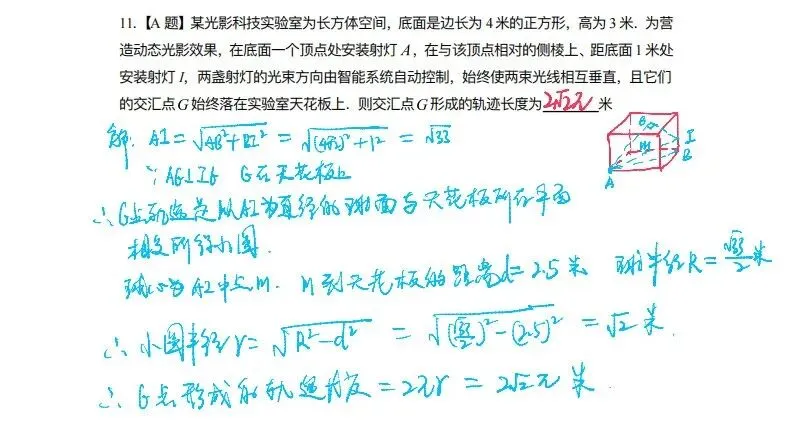 11.【A 题】某光影科技实验室为长方体空间，底面是边长为 4 米的正方形，高为 3 米．为营
造动态光影效果，在底面一个顶点处安装射灯 A，在与该顶点相对的侧棱上、距底面 1 米处
安装射灯 I，两盏射灯的光束方向由智能系统自动控制，始终使两束光线相互垂直，且它们
的交汇点 G 始终落在实验室天花板上．则交汇点 G 形成的轨迹长度为 2√2π 米
解: AI = √(AB²+BI²) = √((4√2)²+1²) = √33
∵ AG⊥IG G在天花板上
∴ G点轨迹是以AI为直径的球面与天花板所在平面
相交所得小圆.
球心为AI中点M. M到天花板的距离d=2.5米 球半径R=√33/2米
∴ 小圆半径r=√(R²-d²) = √((√33/2)²-(2.5)²) = √2 米.
∴ G点形成的轨迹长度=2πr = 2√2π 米.
G
M
I
B
A